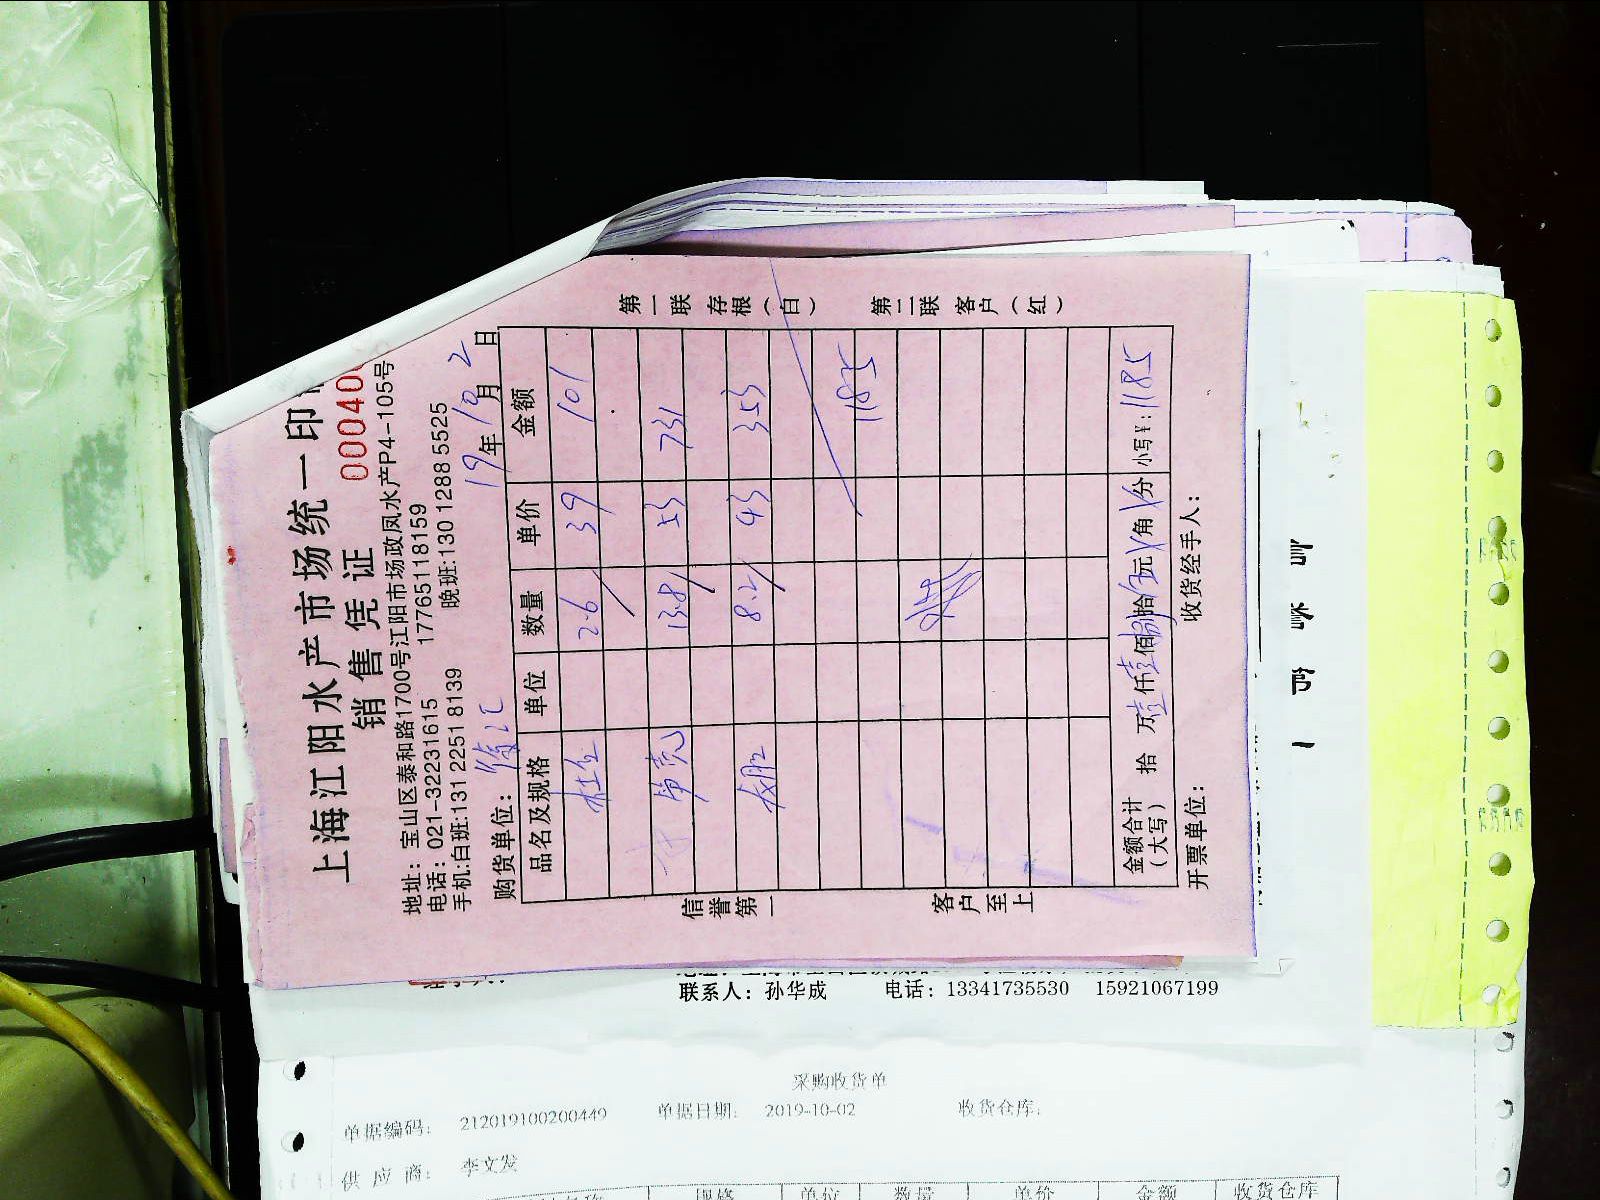 上海江阳水产市场统一印
销售凭证
00040
地址：宝山区泰和路1700号江阳市场政凤水产P4-105号
电话：021-32231615 17765118159
手机:白班:131 2251 8139 晚班:130 1288 5525
购货单位：徐汇 19年10月2日
品名及规格 单位 数量 单价 金额
2.6 39 101
13.8 53 731
8.2 43 353
1185
金额合计（大写） 拾 万壹仟壹佰捌拾伍元 角 分 小写¥：1185
开票单位： 收货经手人：
信誉第一 客户至上
第一联 存根（白） 第二联 客户（红）
联系人：孙华成 电话：13341735530 15921067199
采购收货单
单据编码： 212019100200449 单据日期： 2019-10-02 收货仓库：
供应商： 李文发
单位 数量 单价 金额 收货仓库